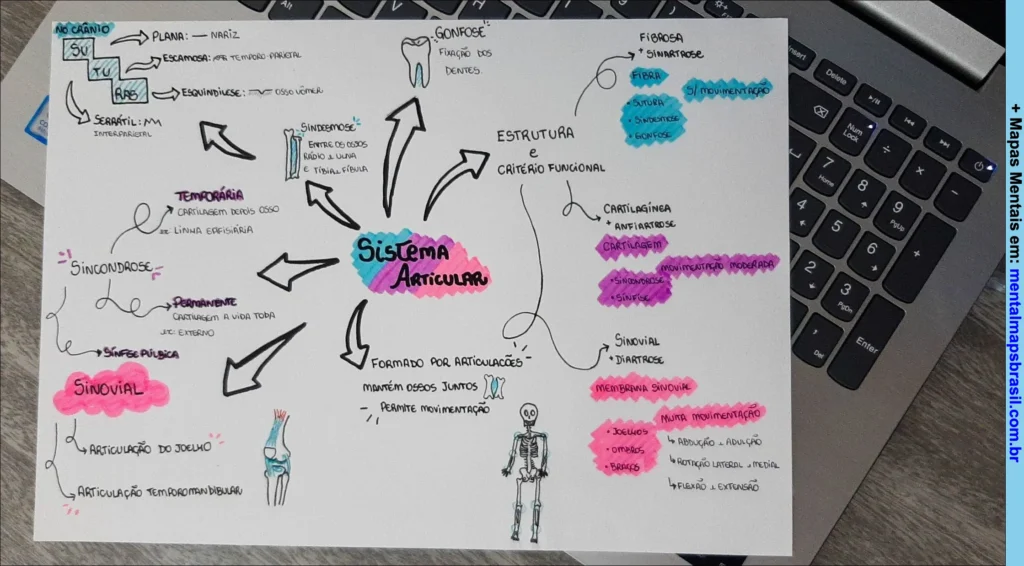 NO CRÂNIO
SU
TU
RAS
PLANA: — NARIZ
ESCAMOSA: TEMPORO PARIETAL
ESQUINDILESE: OSSO VÔMER
SERRÁTIL:
INTERPARIETAL
GONFOSE
FIXAÇÃO DOS
DENTES.
SINDESMOSE
ENTRE OS OSSOS
RÁDIO E ULNA
E TÍBIA E FÍBULA
ESTRUTURA
E
CRITÉRIO FUNCIONAL
FIBROSA
+ SINARTROSE
FIBRA
S/ MOVIMENTAÇÃO
• SUTURA
• SINDESMOSE
• GONFOSE
CARTILAGÍNEA
+ ANFIARTROSE
CARTILAGEM
MOVIMENTAÇÃO MODERADA
• SINCONDROSE
• SÍNFISE
SINOVIAL
+ DIARTROSE
MEMBRANA SINOVIAL
MUITA MOVIMENTAÇÃO
• JOELHOS
• OMBROS
• BRAÇOS
ABDUÇÃO E ADUÇÃO
ROTAÇÃO LATERAL E MEDIAL
FLEXÃO E EXTENSÃO
SISTEMA
ARTICULAR
TEMPORÁRIA
CARTILAGEM DEPOIS OSSO
EX: LINHA EPIFISIÁRIA
SINCONDROSE
PERMANENTE
CARTILAGEM A VIDA TODA
EX: EXTERNO
SÍNFISE PÚLBICA
SINOVIAL
ARTICULAÇÃO DO JOELHO
ARTICULAÇÃO TEMPOROMANDIBULAR
FORMADO POR ARTICULAÇÕES
MANTÉM OSSOS JUNTOS
PERMITE MOVIMENTAÇÃO
Insert
Delete
Num
Lock
7
Home
8
9
PgUp
4
5
6
2
3
PgDn
Del
Enter
+ Mapas Mentais em: mentalmapsbrasil.com.br